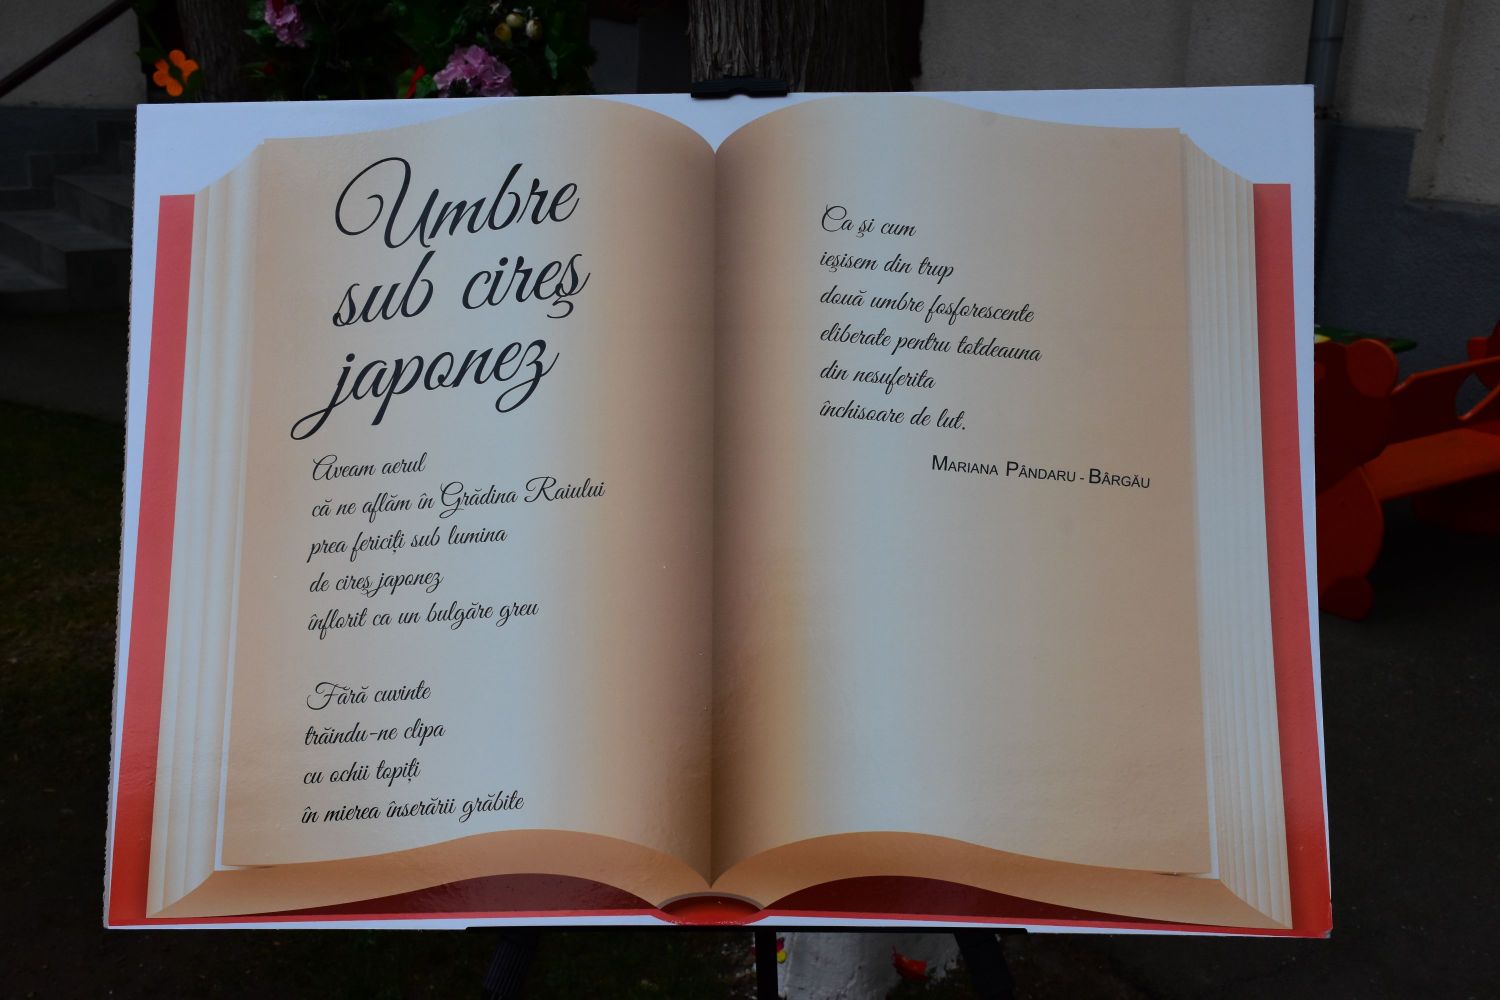 Umbre
sub cireş
japonez
Aveam aerul
că ne aflăm în Grădina Raiului
prea fericiţi sub lumina
de cireş japonez
înflorit ca un bulgăre greu
Fără cuvinte
trăindu-ne clipa
cu ochii topiţi
în mierea înserării grăbite
Ca şi cum
ieşisem din trup
două umbre fosforescente
eliberate pentru totdeauna
din nesuferita
închisoare de lut.
Mariana Pândaru - Bârgău